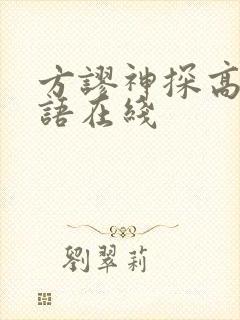 方謬神探高
語在綫
劉翠莉